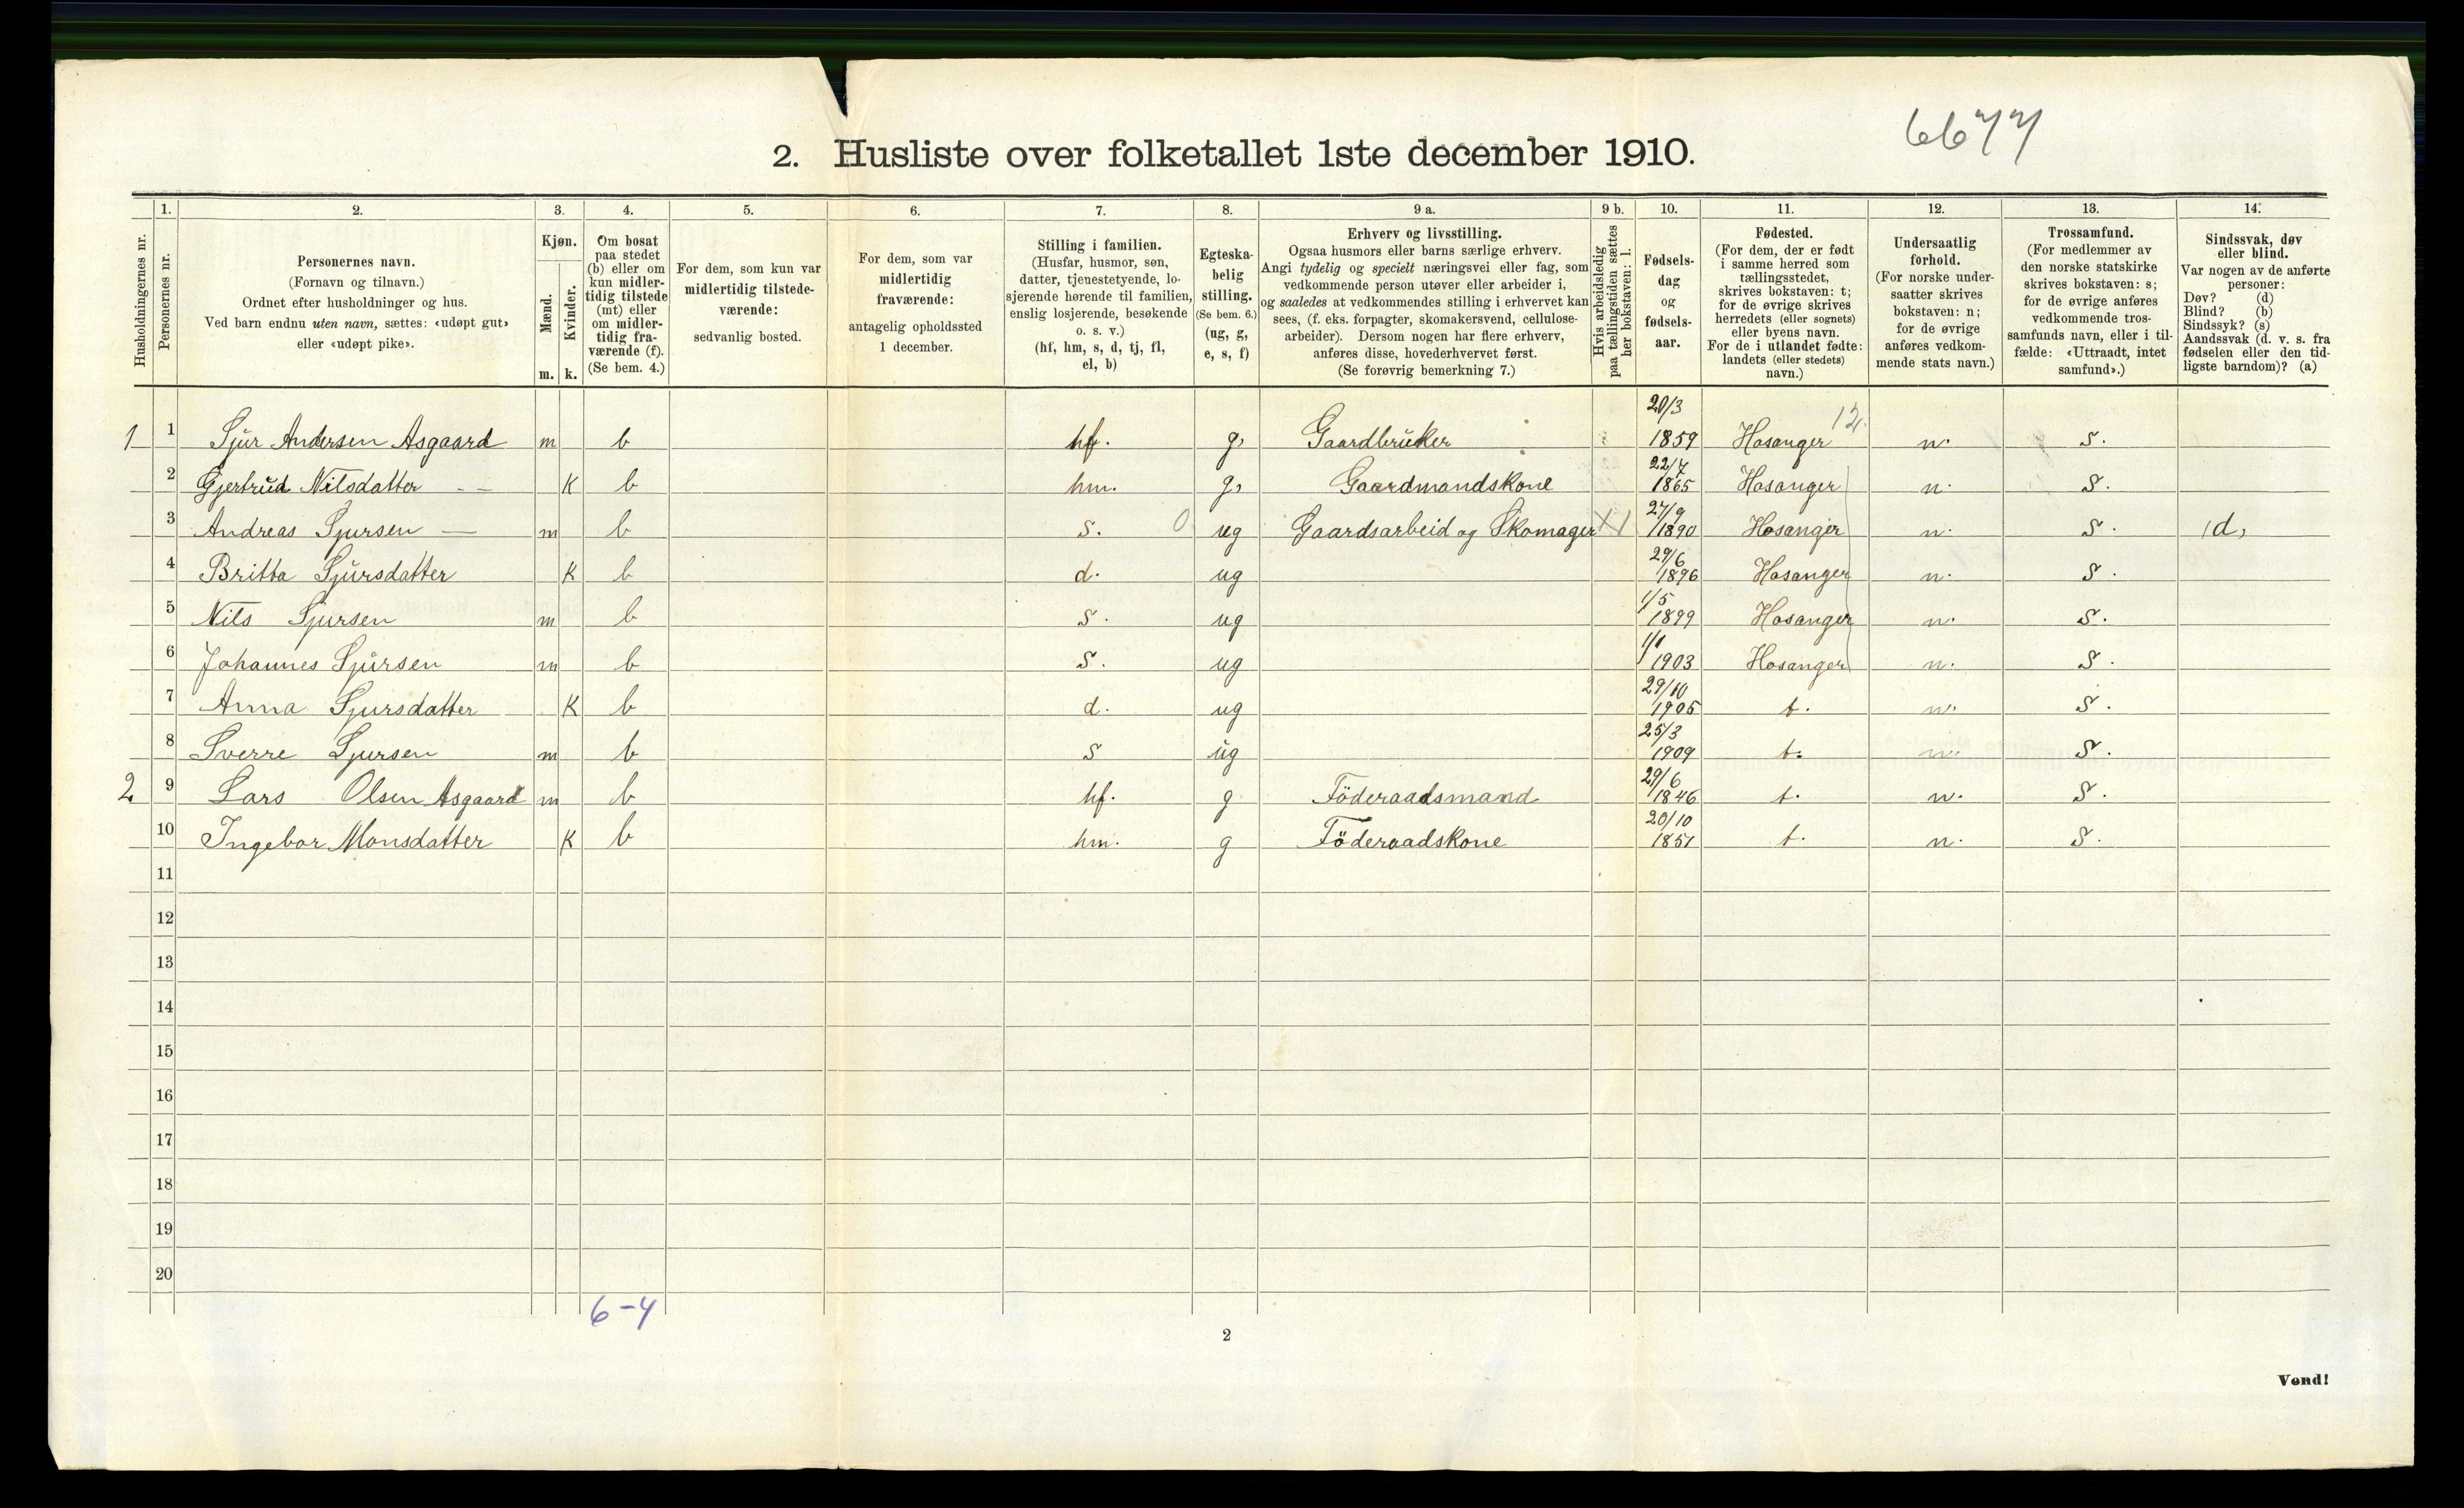 6677
2. Husliste over folketallet 1ste december 1910.
Husholdningernes nr.
1.
Personernes nr.
2.
Personernes navn.
(Fornavn og tilnavn.)
Ordnet efter husholdninger og hus.
Ved barn endnu uten navn, sættes: «udøpt gut»
eller «udøpt pike».
3.
Kjøn.
Mænd.
Kvinder.
m. k.
4.
Om bosat
paa stedet
(b) eller om
kun midler-
tidig tilstede
(mt) eller
om midler-
tidig fra-
værende (f).
(Se bem. 4.)
5.
For dem, som kun var
midlertidig tilstede-
værende:
sedvanlig bosted.
6.
For dem, som var
midlertidig
fraværende:
antagelig opholdssted
1 december.
7.
Stilling i familien.
(Husfar, husmor, søn,
datter, tjenestetyende, lo-
sjerende hørende til familien,
enslig losjerende, besøkende
o. s. v.)
(hf, hm, s, d, tj, fl,
el, b)
8.
Egteska-
belig
stilling.
(Se bem. 6.)
(ug, g,
e, s, f)
9 a.
Erhverv og livsstilling.
Ogsaa husmors eller barns særlige erhverv.
Angi tydelig og specielt næringsvei eller fag, som
vedkommende person utøver eller arbeider i,
og saaledes at vedkommendes stilling i erhvervet kan
sees, (f. eks. forpagter, skomakersvend, cellulose-
arbeider). Dersom nogen har flere erhverv,
anføres disse, hovederhvervet først.
(Se forøvrig bemerkning 7.)
9 b.
Hvis arbeidsledig
paa tællingstiden sættes
her bokstaven: l.
10.
Fødsels-
dag
og
fødsels-
aar.
11.
Fødested.
(For dem, der er født
i samme herred som
tællingsstedet,
skrives bokstaven: t;
for de øvrige skrives
herredets (eller sognets)
eller byens navn.
For de i utlandet fødte:
landets (eller stedets)
navn.)
12.
Undersaatlig
forhold.
(For norske under-
saatter skrives
bokstaven: n;
for de øvrige
anføres vedkom-
mende stats navn.)
13.
Trossamfund.
(For medlemmer av
den norske statskirke
skrives bokstaven: s;
for de øvrige anføres
vedkommende tros-
samfunds navn, eller i til-
fælde: «Uttraadt, intet
samfund».)
14.
Sindssvak, døv
eller blind.
Var nogen av de anførte
personer:
Døv? (d)
Blind? (b)
Sindssyk? (s)
Aandssvak (d. v. s. fra
fødselen eller den tid-
ligste barndom)? (a)
1 1 Sjur Andersen Asgaard m b hf. g, Gaardbruker 20/3 1859 Hosanger 12. n. S.
2 Gjertrud Nilsdatter — K b hm. g, Gaardmandskone 22/7 1865 Hosanger n. S.
3 Andreas Sjursen — m b s. 0 ug Gaardsarbeid og Skomager X1 27/9 1890 Hosanger n. S. d,
4 Britta Sjursdatter K b d. ug 29/6 1896 Hosanger n. S.
5 Nils Sjursen m b s. ug 1/5 1899 Hosanger n. S.
6 Johannes Sjursen m b s. ug 1/1 1903 Hosanger n. S.
7 Anna Sjursdatter K b d. ug 29/10 1905 t. n. S.
8 Sverre Sjursen m b s ug 25/3 1909 t. n. S.
2 9 Lars Olsen Asgaard m b hf. g Föderaadsmand 29/6 1846 t. n. S.
10 Ingebor Monsdatter K b hm. g Föderaadskone 20/10 1851 t. n. S.
11
12
13
14
15
16
17
18
19
20
6-4
2
Vend!